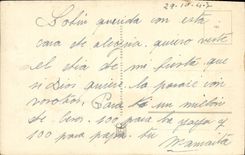 29-10-47
Sobri querida con esta
cara de alegria quiero verte
el dia de mi fiesta que
si Dios quiere la pasare con
vosotros. Para ti un millon
de besos. 100 para la yaya y
100 para papa. tu
Mamaita